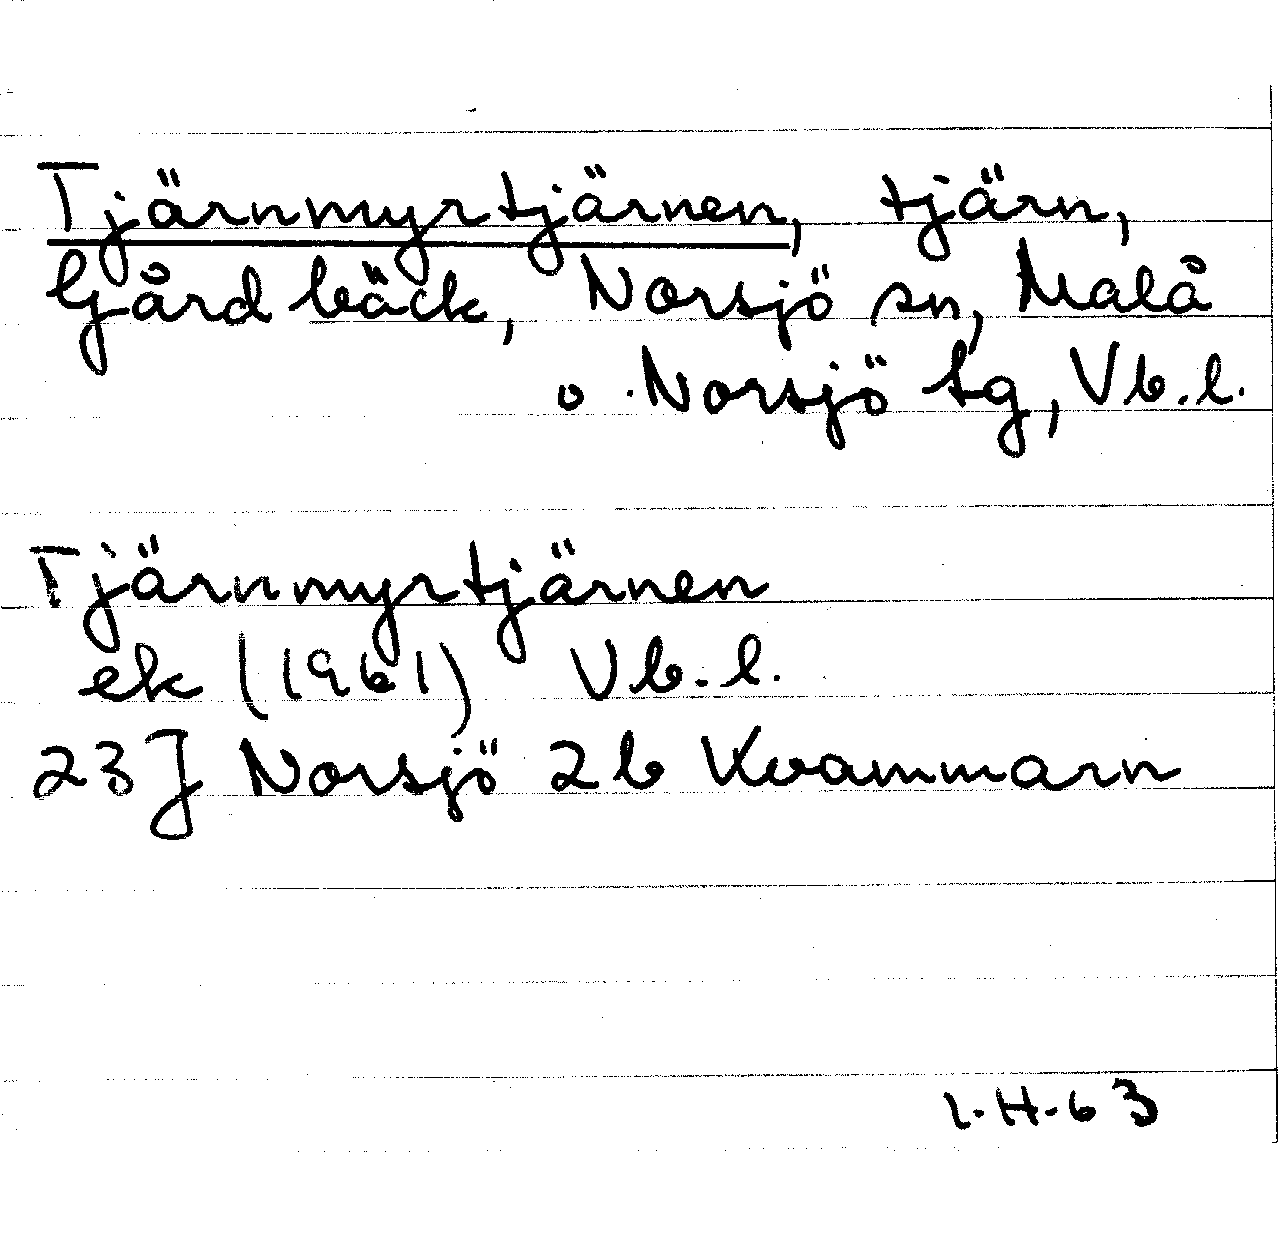 Tjärnmyrtjärnen, tjärn,
Gårdbäck, Norsjö sn, Malå
o. Norsjö tg, Vb.l.
Tjärnmyrtjärnen
ek (1961) Vb.l.
23J Norsjö 2b Kvammarn
L.H.63